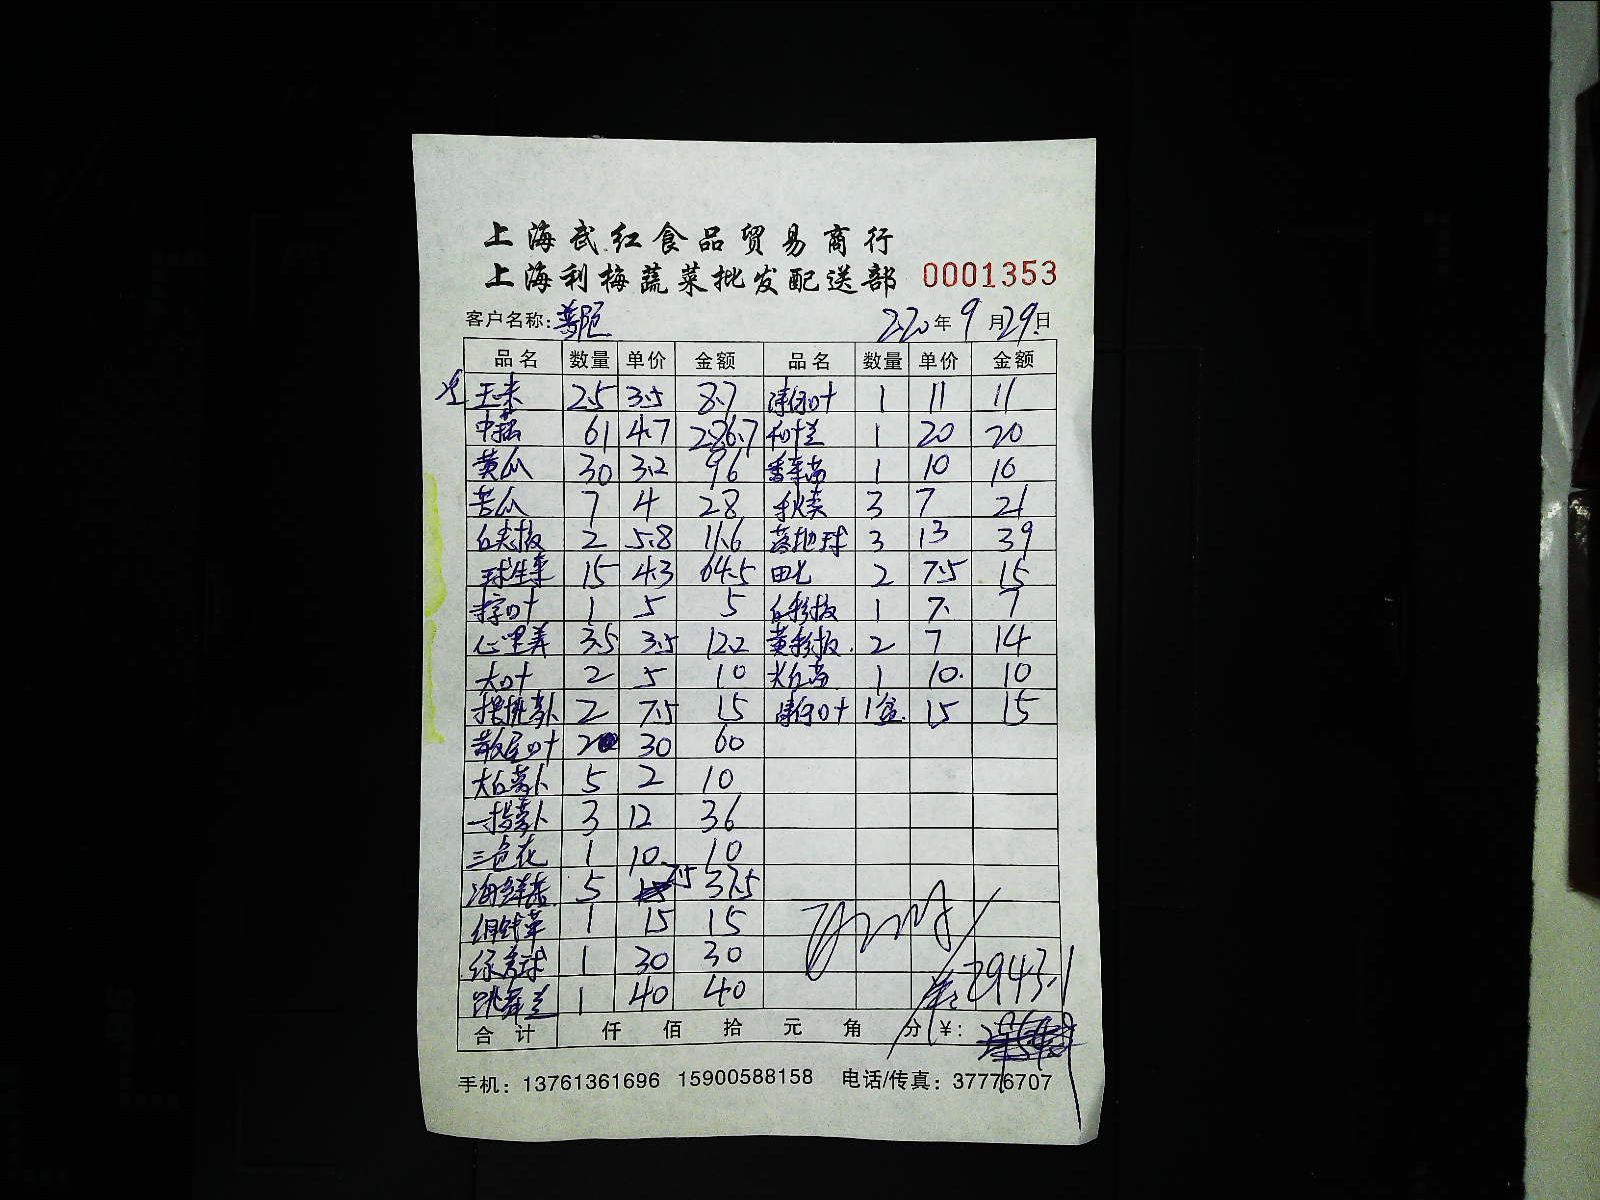 上海武红食品贸易商行
上海利梅蔬菜批发配送部 0001353
客户名称: 2020年9月29日
品名 数量 单价 金额 品名 数量 单价 金额
玉米 2.5 3.5 8.7 薄荷叶 1 11 11
中菇 61 4.7 286.7 1 20 20
黄瓜 30 3.2 96 1 10 10
苦瓜 7 4 28 秋葵 3 7 21
5.8 11.6 3 13 39
球生菜 15 4.3 64.5 田七 2 7.5 15
1 5 5 1 7. 7
心里美 3.5 3.5 12.2 2 7 14
大叶 2 5 10 1 10. 10
2 7.5 15 薄荷叶 1盒 15 15
散尾叶 2 30 60
大红萝卜 5 2 10
手指萝卜 3 12 36
三色花 1 10. 10
海鲜菇 5 7.5 37.5
铜钱草 1 15 15
1 30 30
跳舞兰 1 40 40
2943.1
合计 仟 佰 拾 元 角 分 ¥:
手机: 13761361696 15900588158 电话/传真: 37776707